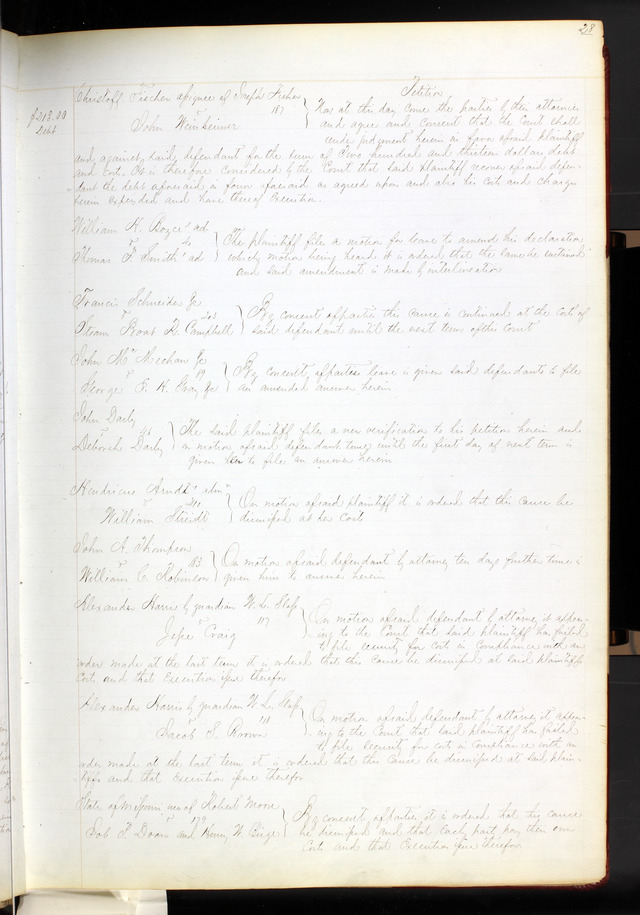 28
Petition
Christoff Fischer assignee of Joseph Fisher
$213.00
Debt
vs 187
John Weinheimer
Now at this day come the parties by their attornies
and agree and consent that the Court shall
enter judgment herein in favor of said plaintiff
and against said defendant for the sum of two hundred and thirteen dollars debt
and Costs. It is therefore considered by the Court that said plaintiff recover of said defen-
dant the debt aforesaid in form aforesaid as agreed upon and also his Costs and Charges
herein expended and have thereof Execution.
William K. Boyce' ad
vs 40
Thomas F. Smith' ad
The plaintiff files a motion for leave to amend his declaration
which motion being heard it is ordered that the same be sustained
and said amendments is made by interlineation
Francis Schneider Jr
vs 203
Steam Boat A. Campbell
By consent of parties this cause is continued at the costs of
said defendant until the next term of this Court
John McMechan Jr
vs 89
George E. H. Gray Jr
By consent of parties leave is given said defendants to file
an amended answer herein
John Daily
vs
Deborah Daily
The said plaintiff files a new verification to his petition herein and
on motion of said defendant time until the first day of next term is
given her to file an answer herein
Hendricus Arndts' admr
vs
William Streidt
On motion of said plaintiff it is ordered that this cause be
dismissed at her Costs
John A. Thompson
vs 183
William C. Robinson
On motion of said defendant by attorney ten days further time is
given him to answer herein
Alexander Harris by guardian W. L. Slass
vs 117
Jesse Craig
On motion of said defendant by attorney it appear-
ing to the Court that said plaintiff has failed
to file security for costs in compliance with an
order made at the last term it is ordered that this cause be dismissed at said plaintiffs
Costs and that Execution issue therefor
Alexander Harris by guardian W. L. Slass
vs 118
Jacob S. Brown
On motion of said defendant by attorney it appear-
ing to the Court that said plaintiff has failed
to file security for costs in compliance with an
order made at the last term it is ordered that this cause be dismissed at said plain-
tiffs and that Execution issue therefor
State of Missouri use of Robert Moore
vs 179
Job F. Doan and Henry W.
By consent of parties it is ordered that this cause
be dismissed and that each party pay their own
Costs and that Execution issue therefor